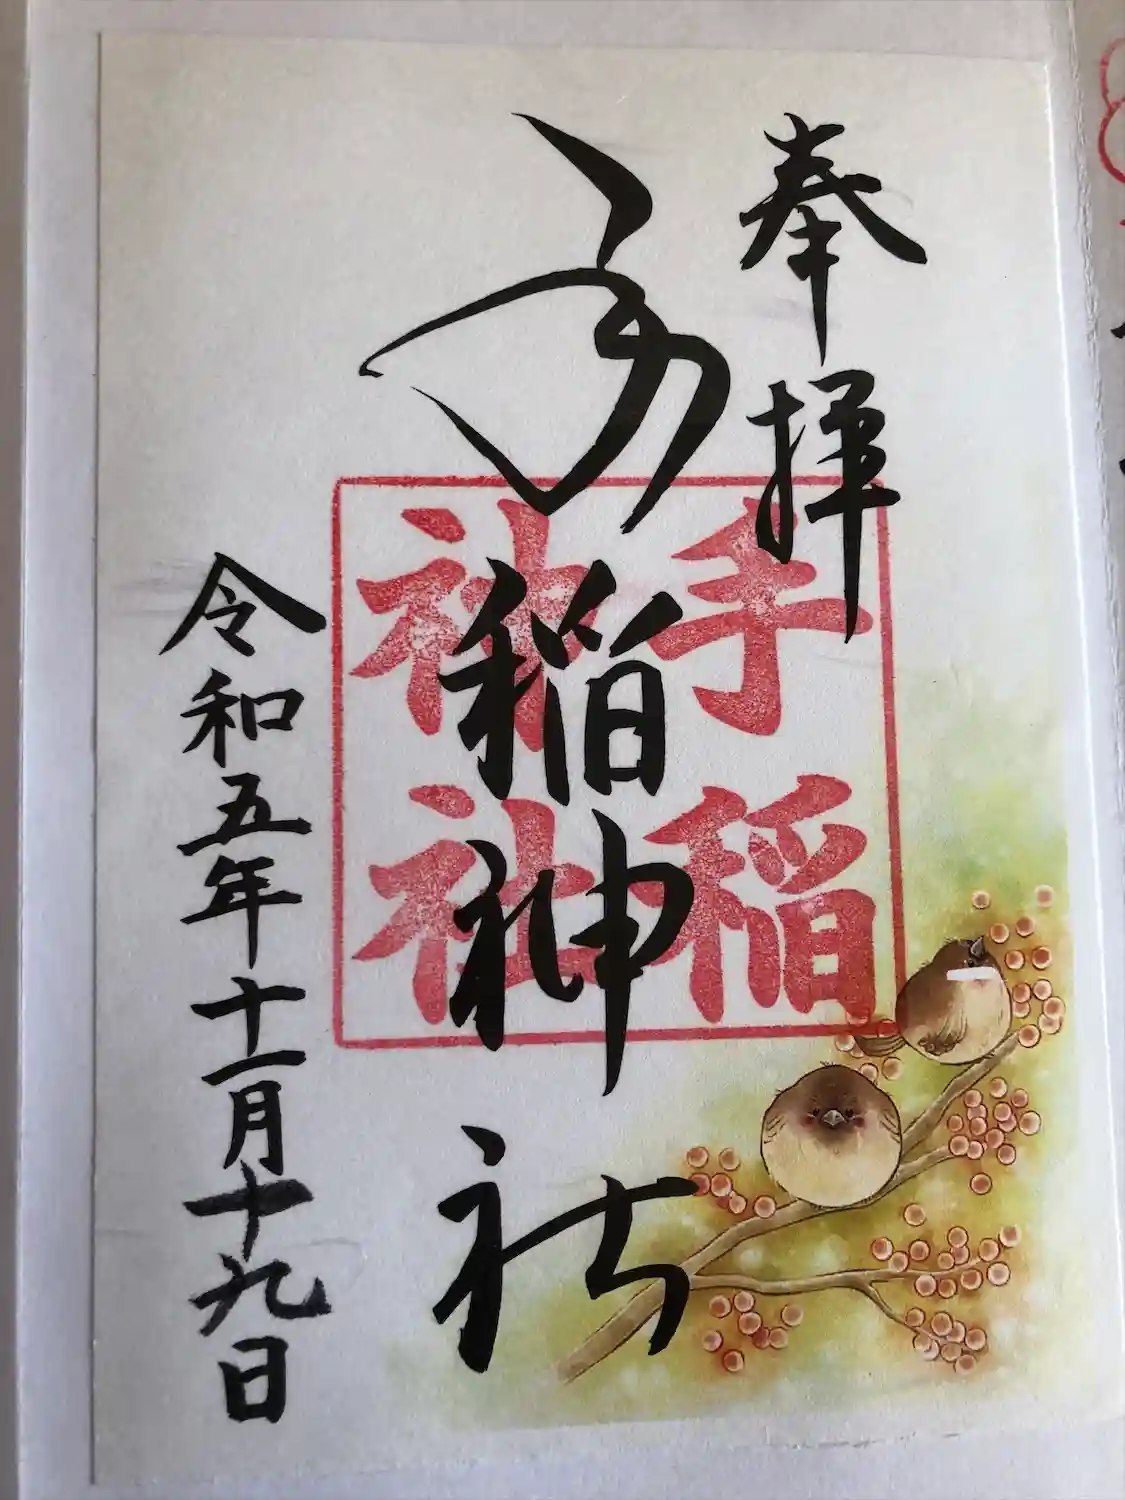 奉拝
手稲神社
手稲神社
令和五年十一月十九日